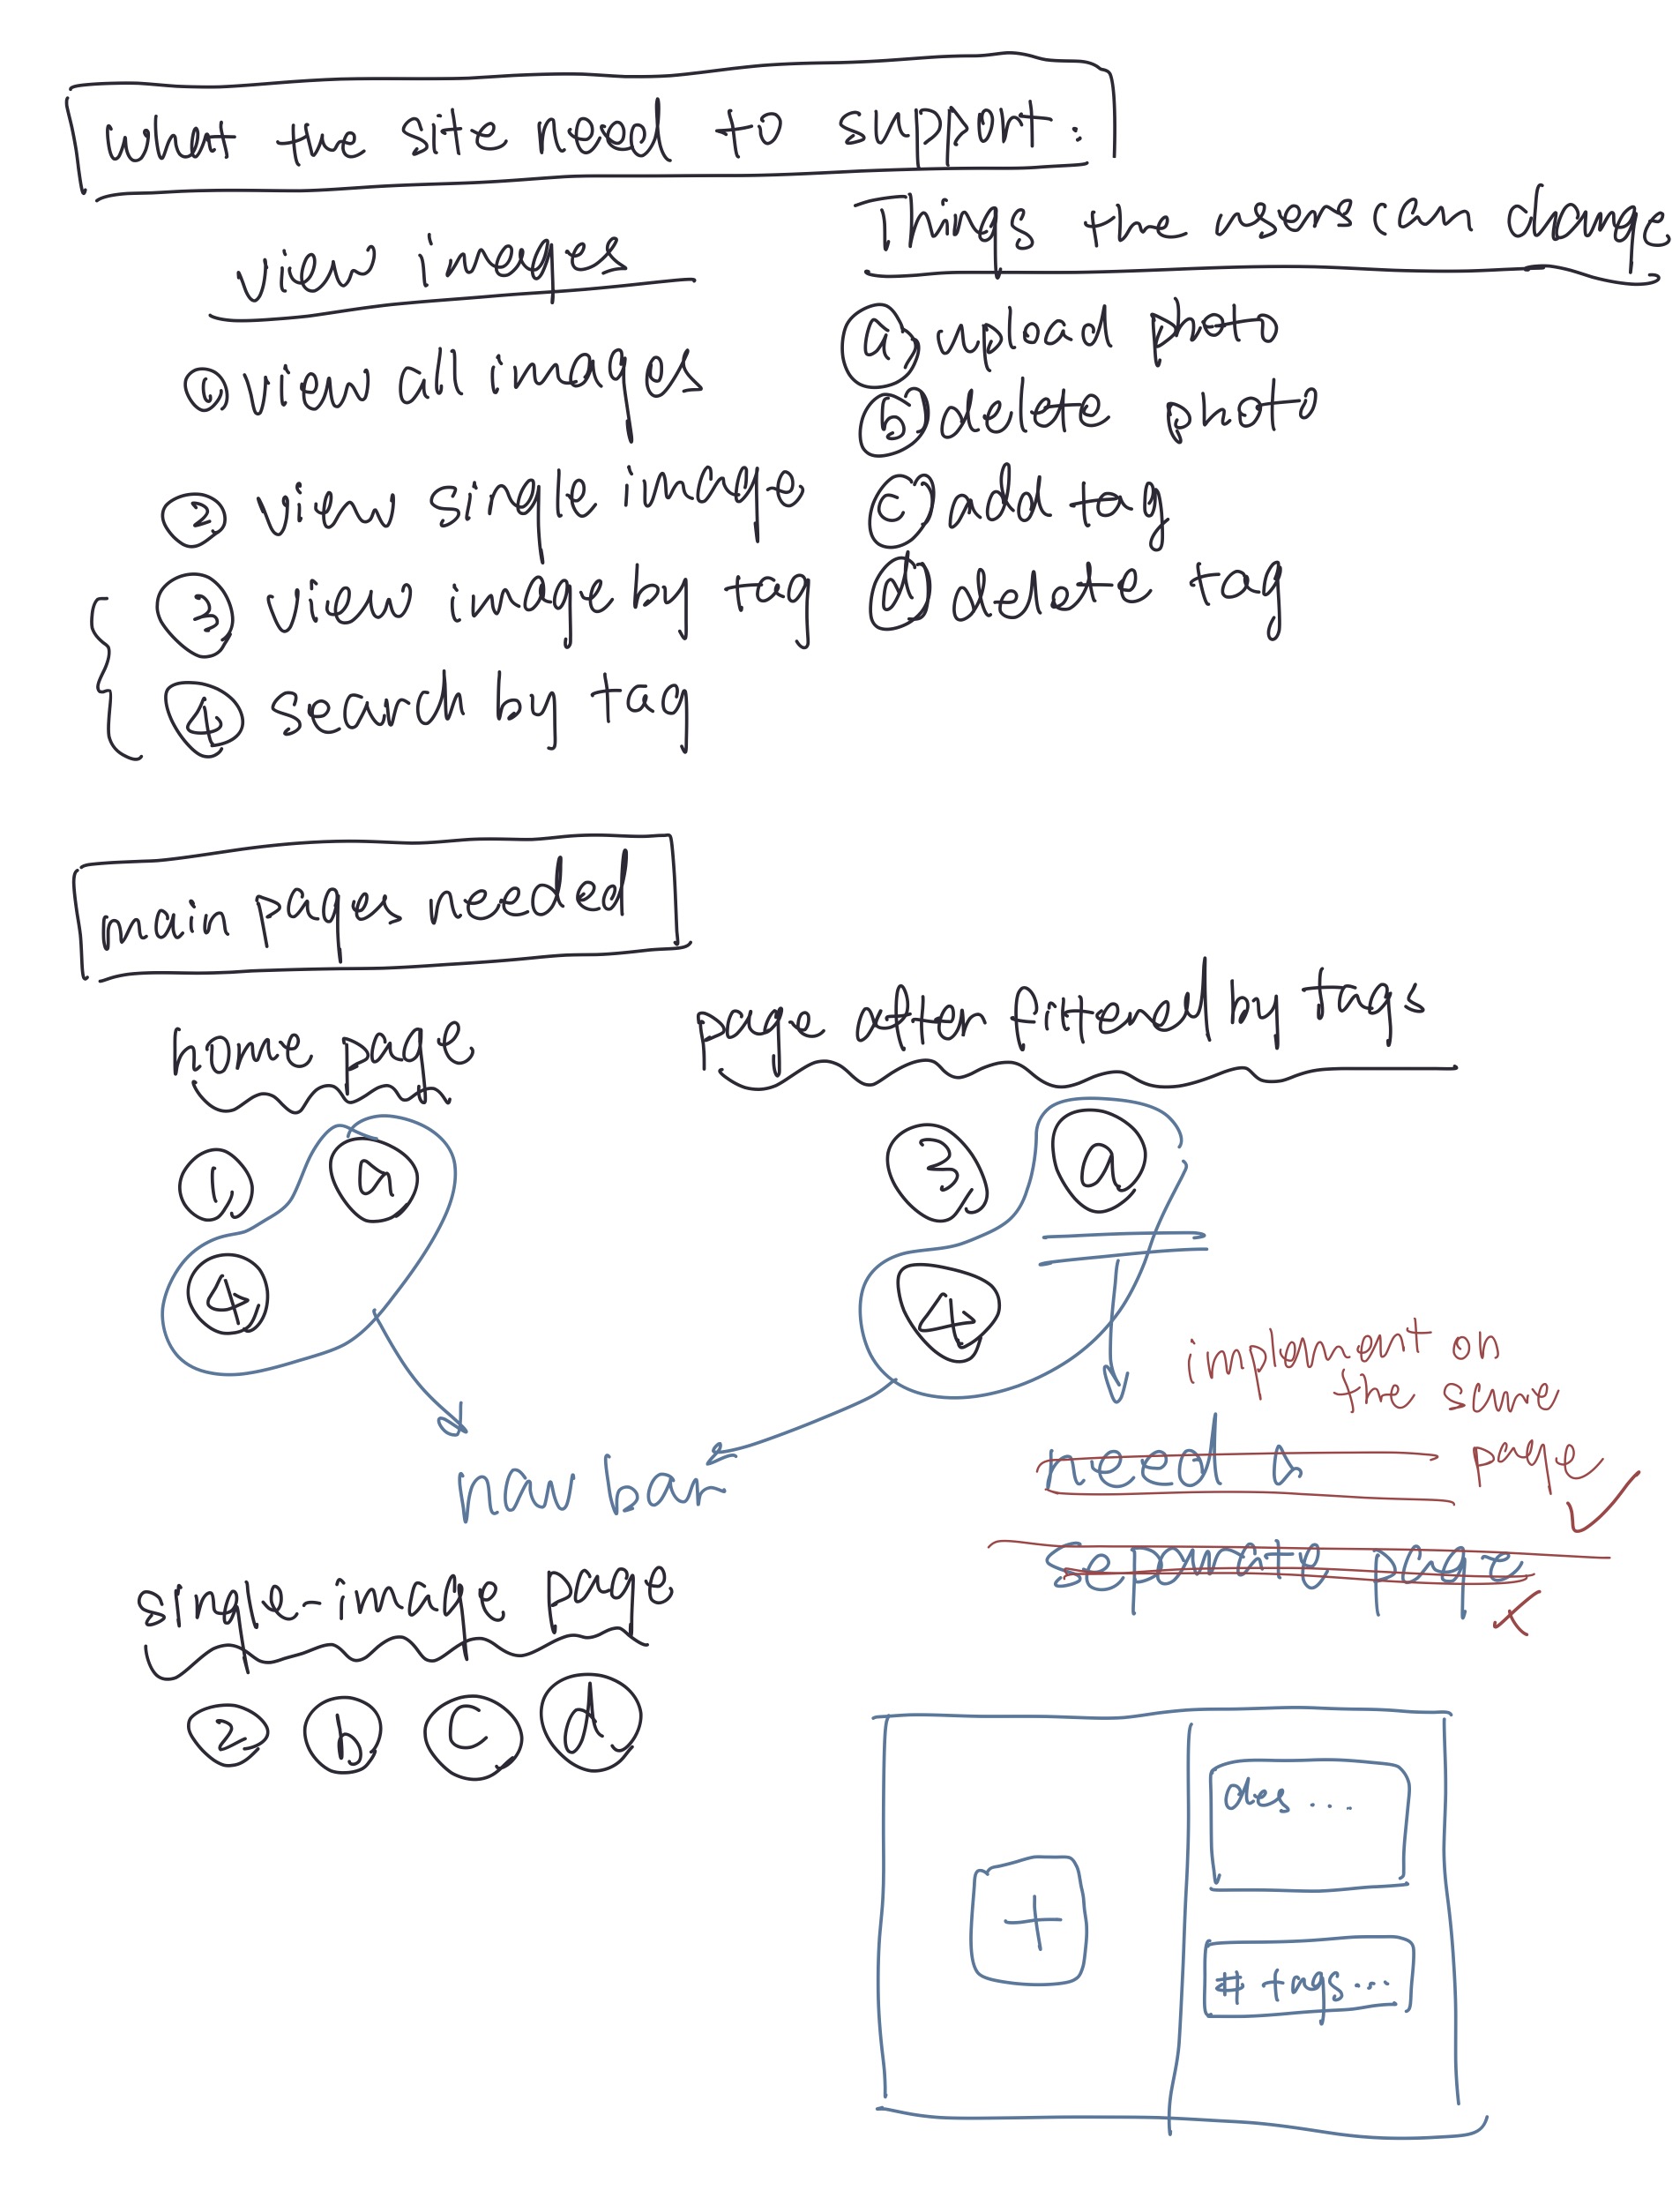 what the site need to support:
view images
① view all images
② view single image
③ view image by tag
④ search by tag
Things the users can change
ⓐ upload photo
ⓑ delete photo
ⓒ add tag
ⓓ delete tag
main pages needed
home page
① ⓐ
④
page after filtered by tags
③ ⓐ
④
nav bar
implement on
the same
page
need a
separate page
single-image page
② ⓑ ⓒ ⓓ
des ...
+
# tags...